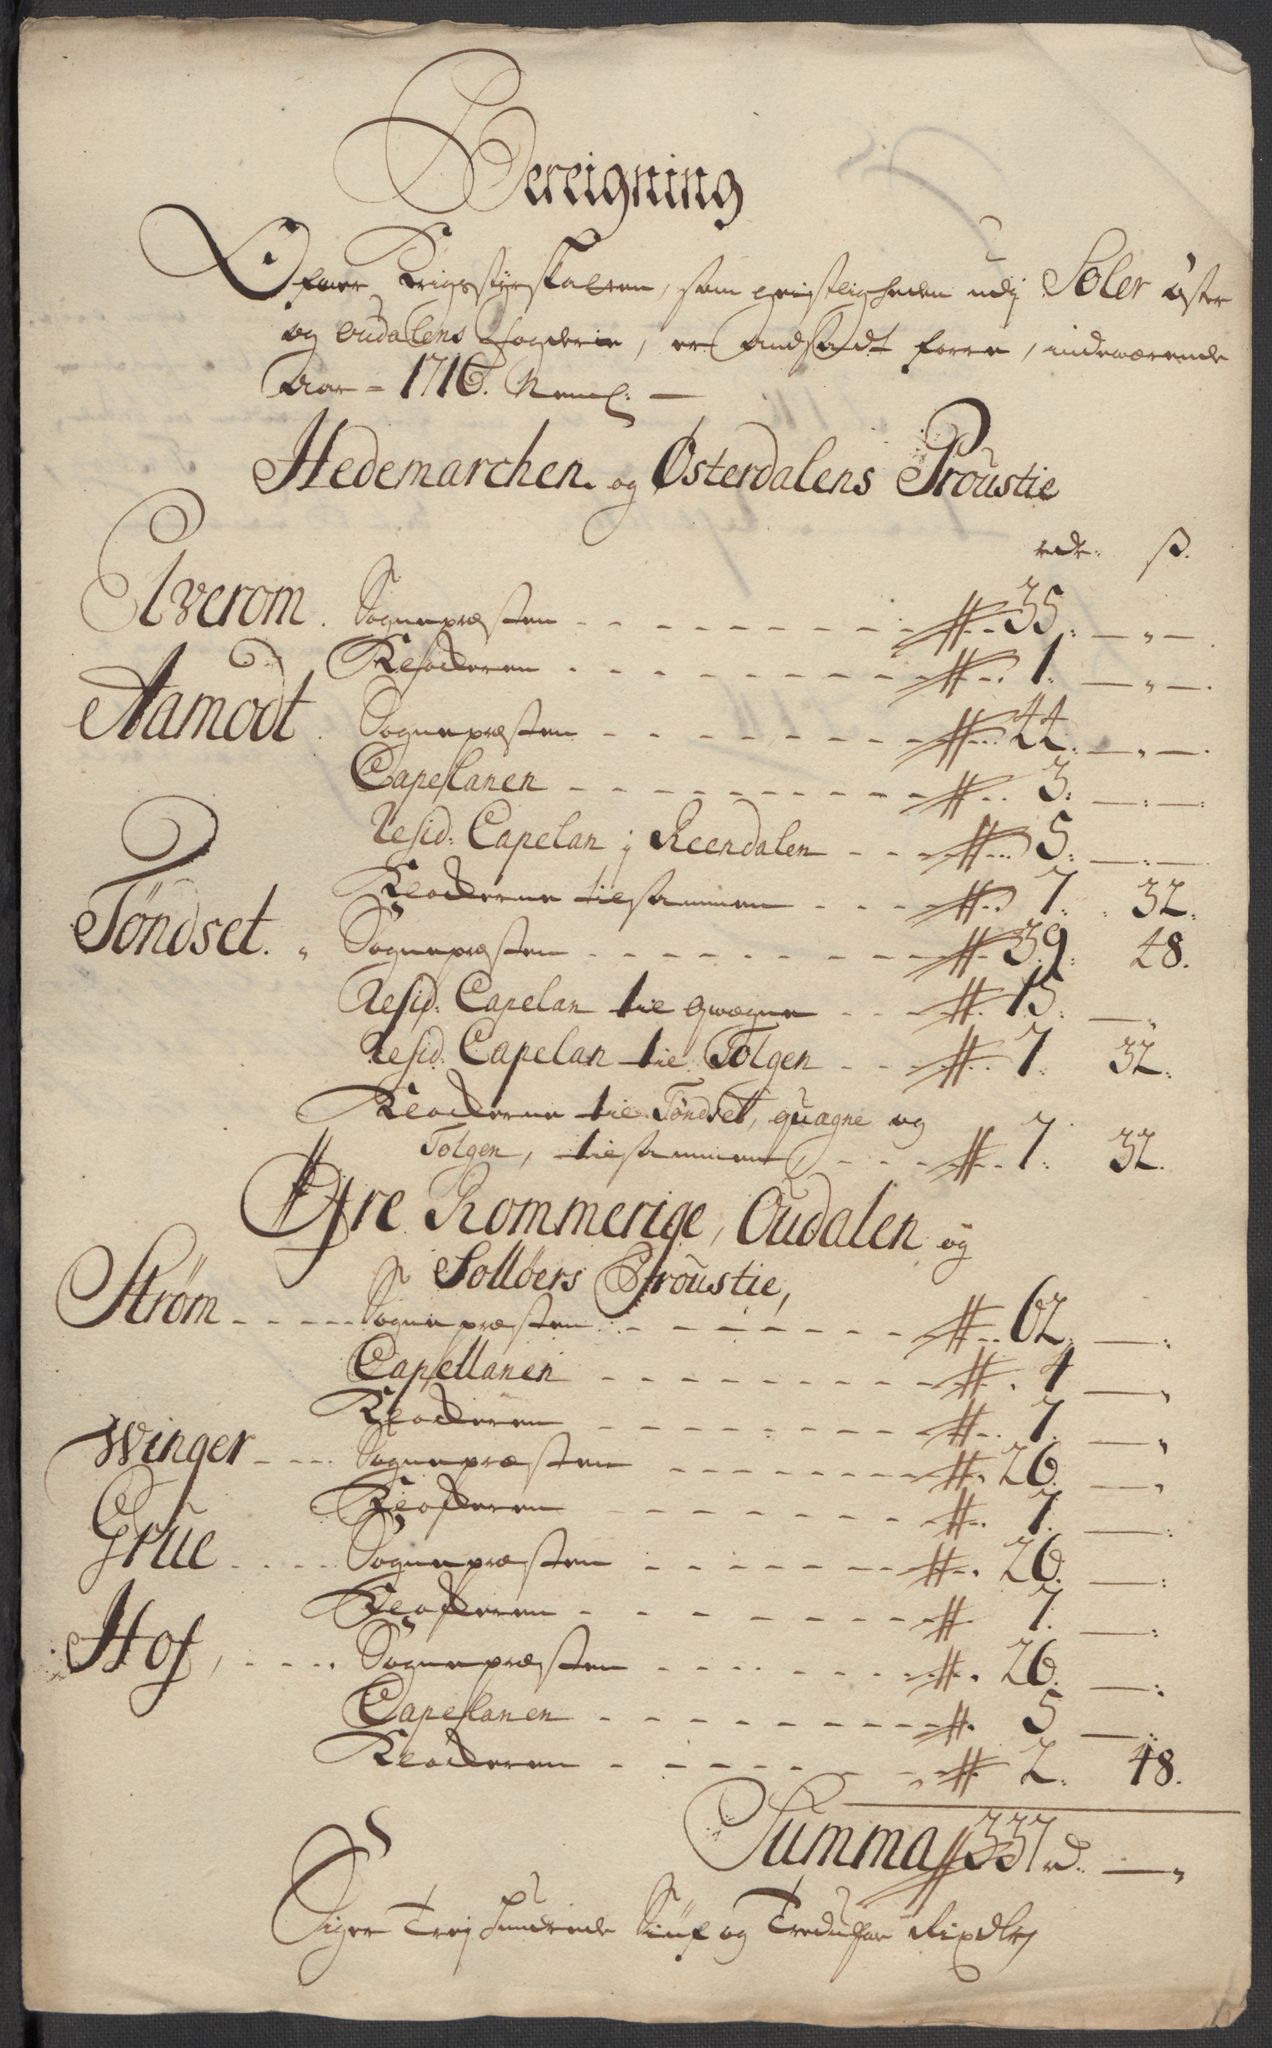 Bereigning
Ofver Krigsstyrskatten, som geistligheden udj Soler öster
og oudalens fogderie, er andsadt forre, indeværende
Aar - 1716. Neml: —
Hedemarchen og Østerdalens Proustie
rdr: ß.
Elverom. Sognepræsten - - - - - - - - - - 35: — „ —
Klockeren - - - - - - - - - - 1: — „ —
Aamodt. Sognepræsten - - - - - - - - 44: — „ —
Capellanen - - - - - - - - - - 3: — : —
Resid: Capelan j Reendalen - - - - 5: — : —
Klockerne tilsammen - - - - 7: 32.
Töndset. „ Sognepræsten - - - - - - - - - 39: 48.
Resid: Capelan til qvægne - - - 15: — „
Resid: Capelan til Tolgen - - - - 7: 32.
Klockerne til Töndset, quægne og
Tolgen, tilsammen, - - - - 7: 32.
Øfre Rommerige, Oudalen og
Sollöers Proustie,
Ström - - - - - Sognepræsten - - - - - - - - - 62: — :
Capellanen - - - - - - - - - - 4 — „
Klockeren - - - - - - - - - 7: — „
Winger - - - - Sognepræsten - - - - - - - - - 26: — „
Klockeren - - - - - - - 7: — :
Grue - - - - - Sognepræsten - - - - - - - - 26: — :
Klockeren - - - - - - - - 7: — :
Hof, - - - - - Sognepræsten - - - - - - - - 26: — :
Capellanen - - - - - - - - - - 5 — :
Klockeren - - - - - - - - 2: 48.
Summa 337 rd. — „
Siger Trej hundrede Siuf og Tredufve Rixdlr